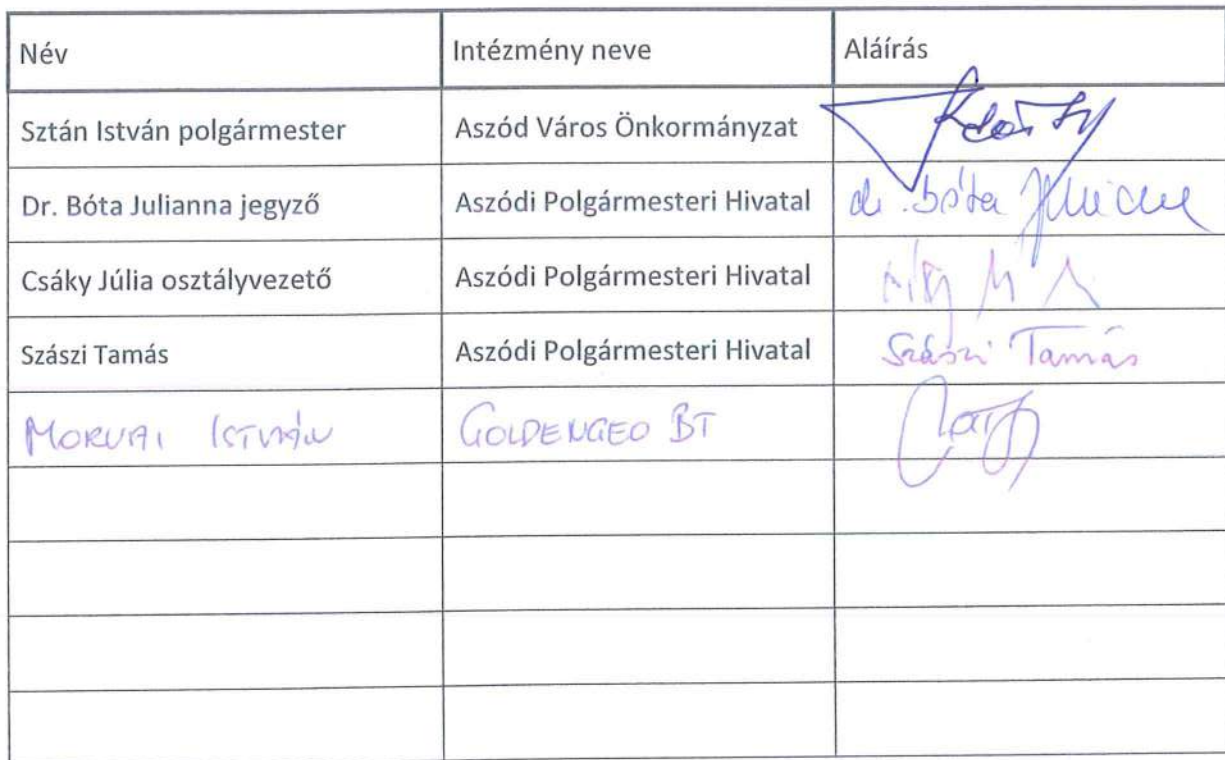 Név Intézmény neve Aláírás
Sztán István polgármester Aszód Város Önkormányzat
Dr. Bóta Julianna jegyző Aszódi Polgármesteri Hivatal dr. Bóta Julianna
Csáky Júlia osztályvezető Aszódi Polgármesteri Hivatal
Szászi Tamás Aszódi Polgármesteri Hivatal Szászi Tamás
MORVAI ISTVÁN GOLDENGEO BT